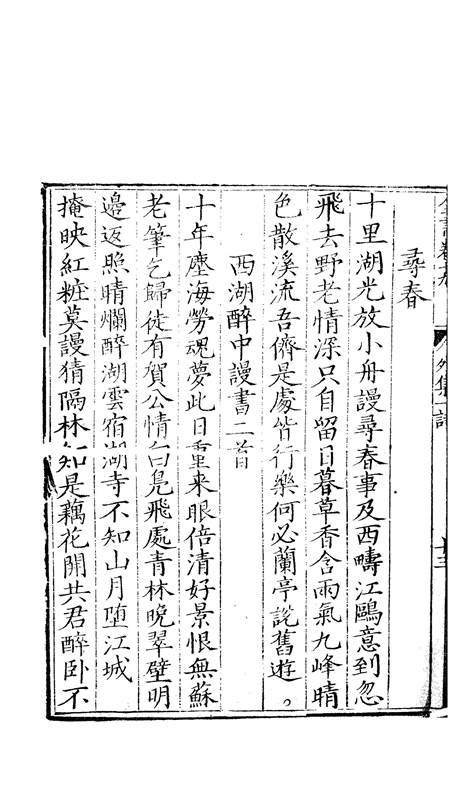 外集一 詩 十三
尋春
十里湖光放小舟謾尋春事及西疇江鷗意到忽
飛去野老情深只自留日暮草香含雨氣九峰晴
色散溪流吾儕是處皆行樂何必蘭亭說舊遊。
西湖醉中謾書二首
十年塵海勞魂夢此日重来眼倍清好景恨無蘇
老筆乞歸徒有賀公情白鳧飛處青林晚翠壁明
邉返照晴爛醉湖雲宿湖寺不知山月墮江城
掩映紅粧莫謾猜隔林知是藕花開共君醉卧不